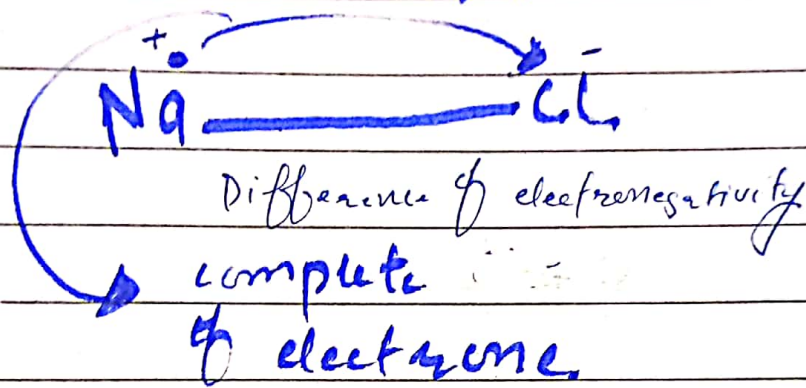 Na⁺ — Cl⁻
Difference of electronegativity
complete
of electrone.